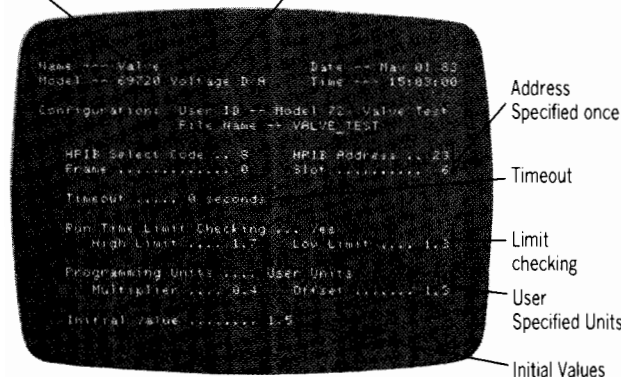 Name --- Valve Date -- May 01 83
Model -- 69720 Voltage D/A Time --- 15:03:00
Configuration: User ID -- Model 72, Valve Test
File Name -- VALVE_TEST
HPIB Select Code .. 8 HPIB Address .. 23
Frame ............. 0 Slot .......... 6
Timeout ..... 0 seconds
Run Time Limit Checking ... Yes
High Limit .... 1.7 Low Limit .... 1.3
Programming Units .... User Units
Multiplier .... 0.4 Offset ....... 1.5
Initial Value ........ 1.5
Address
Specified once
Timeout
Limit
checking
User
Specified Units
Initial Values